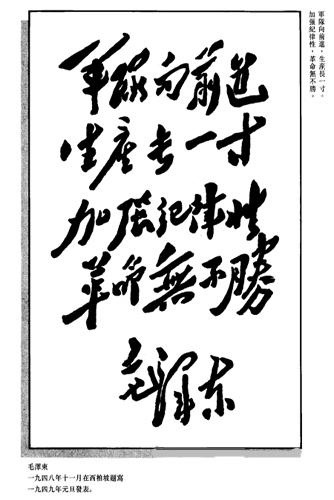 軍隊向前進，生産長一寸。
加强紀律性，革命無不勝。
軍隊向前進
生產長一寸
加强紀律性
革命無不勝
毛澤东
毛澤東
一九四八年十一月在西柏坡題寫
一九四九年元旦發表。